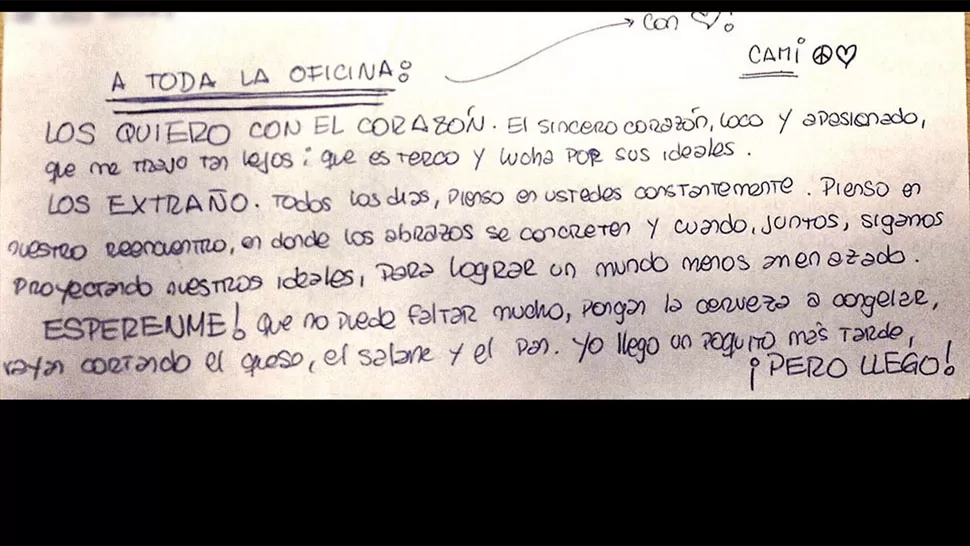 con ♡!
CAMi ☮♡
A TODA LA OFICINA:
LOS QUIERO CON EL CORAZÓN. El sincero corazón, loco y apasionado,
que me trajo tan lejos; que es terco y lucha por sus ideales.
LOS EXTRAÑO. Todos los días, pienso en ustedes constantemente. Pienso en
nuestro reencuentro, en donde los abrazos se concreten y cuando, juntos, sigamos
proyectando nuestros ideales, para lograr un mundo menos amenazado.
ESPERENME! que no puede faltar mucho, pongan la cerveza a congelar,
vayan cortando el queso, el salame y el pan. Yo llego un poquito más tarde,
¡PERO LLEGO!